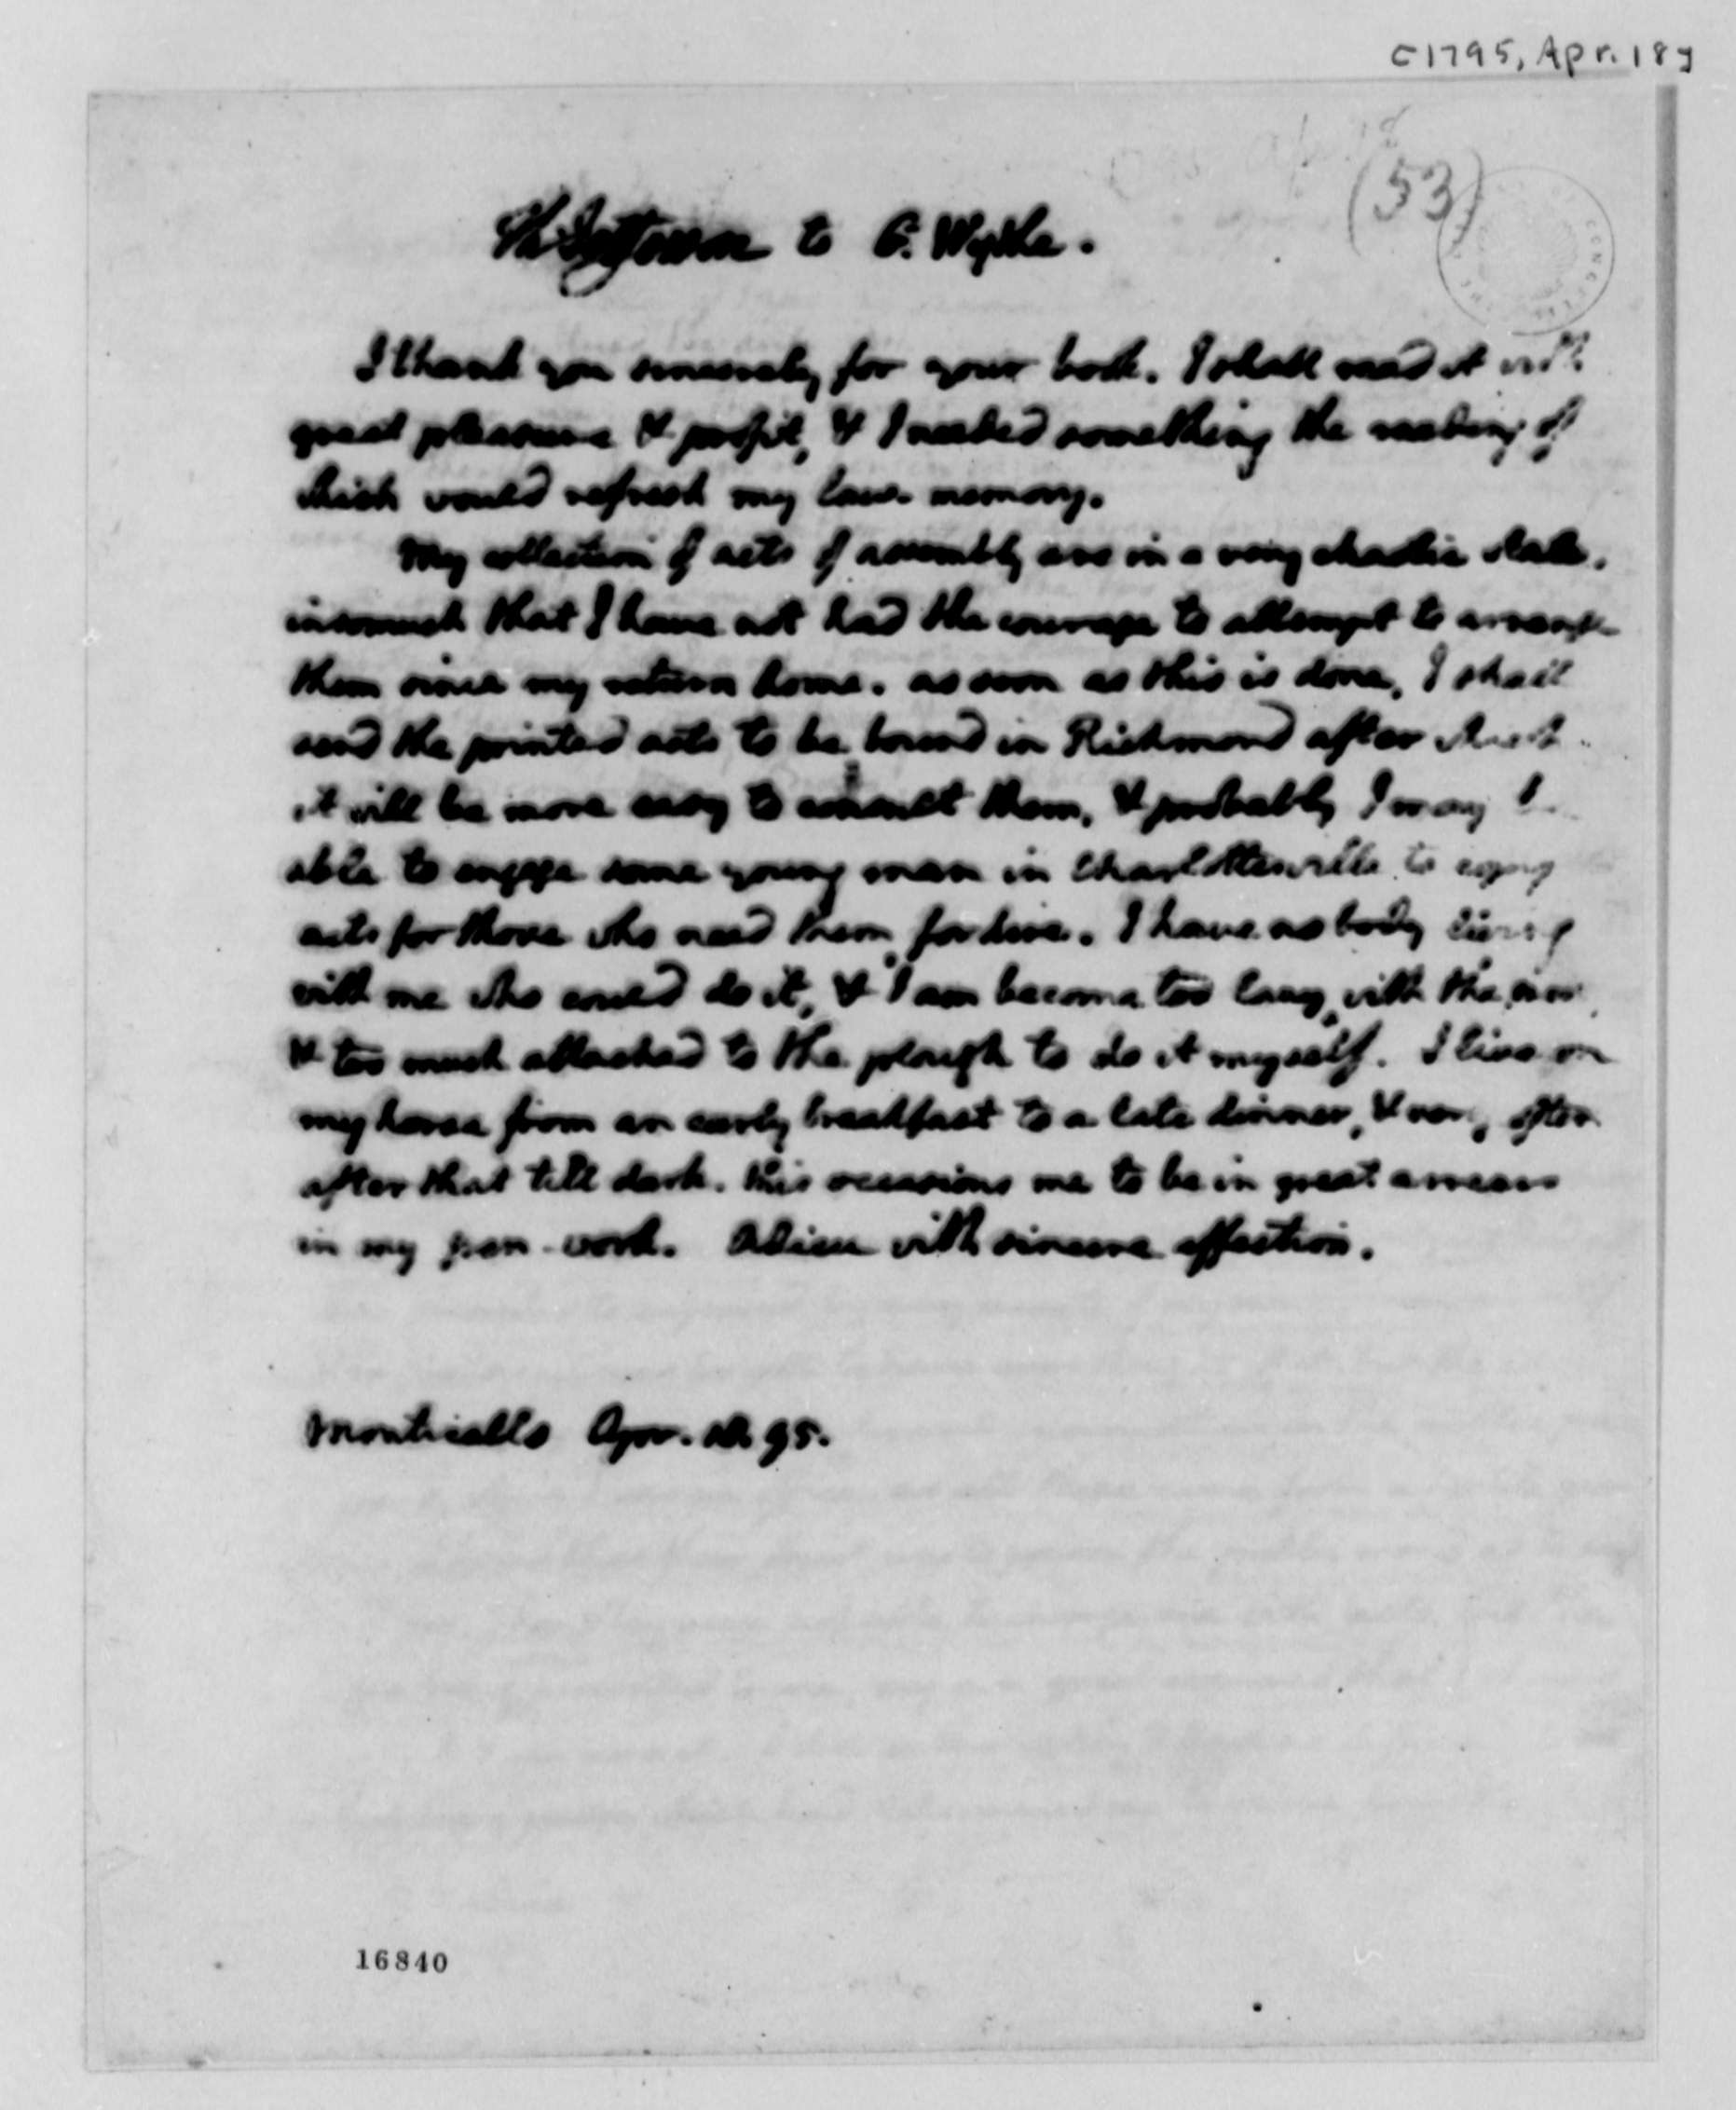 [1795, Apr. 18]
(53)
Th: Jefferson to G. Wythe.
I thank you sincerely for your book. I shall read it with
great pleasure & profit, & I needed something the reading of
which would refresh my law-memory.
My collection of acts of assembly are in a very chaotic state,
insomuch that I have not had the courage to attempt to arrange
them since my return home. as soon as this is done, I shall
send the printed acts to be bound in Richmond after which
it will be more easy to consult them, & probably I may be
able to engage some young man in Charlottesville to copy
acts for those who need them for hire. I have no body living
with me who could do it, & I am become too lazy with the pen,
& too much attached to the plough to do it myself. I live on
my horse from an early breakfast to a late dinner, & very often
after that till dark. this occasions me to be in great arrears
in my pen-work. Adieu with sincere affection.
Monticello Apr. 18. 95.
16840